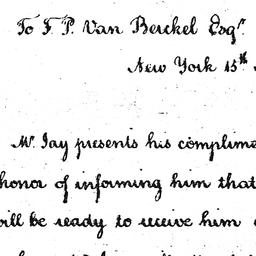 To F. P. Van Berckel Esqr.
New York 15th
Mr. Jay presents his complime
honor of informing him that
will be ready to receive him